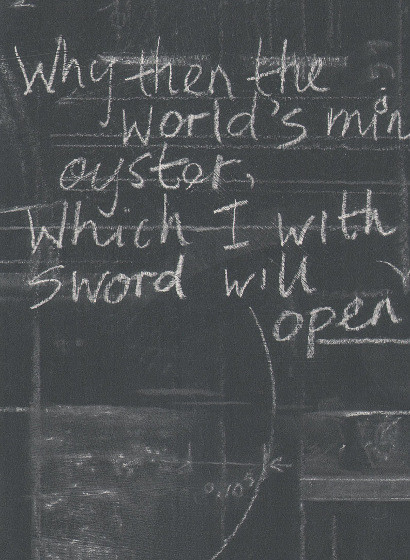 Why then the
world's min
oyster,
Which I with
sword will
open